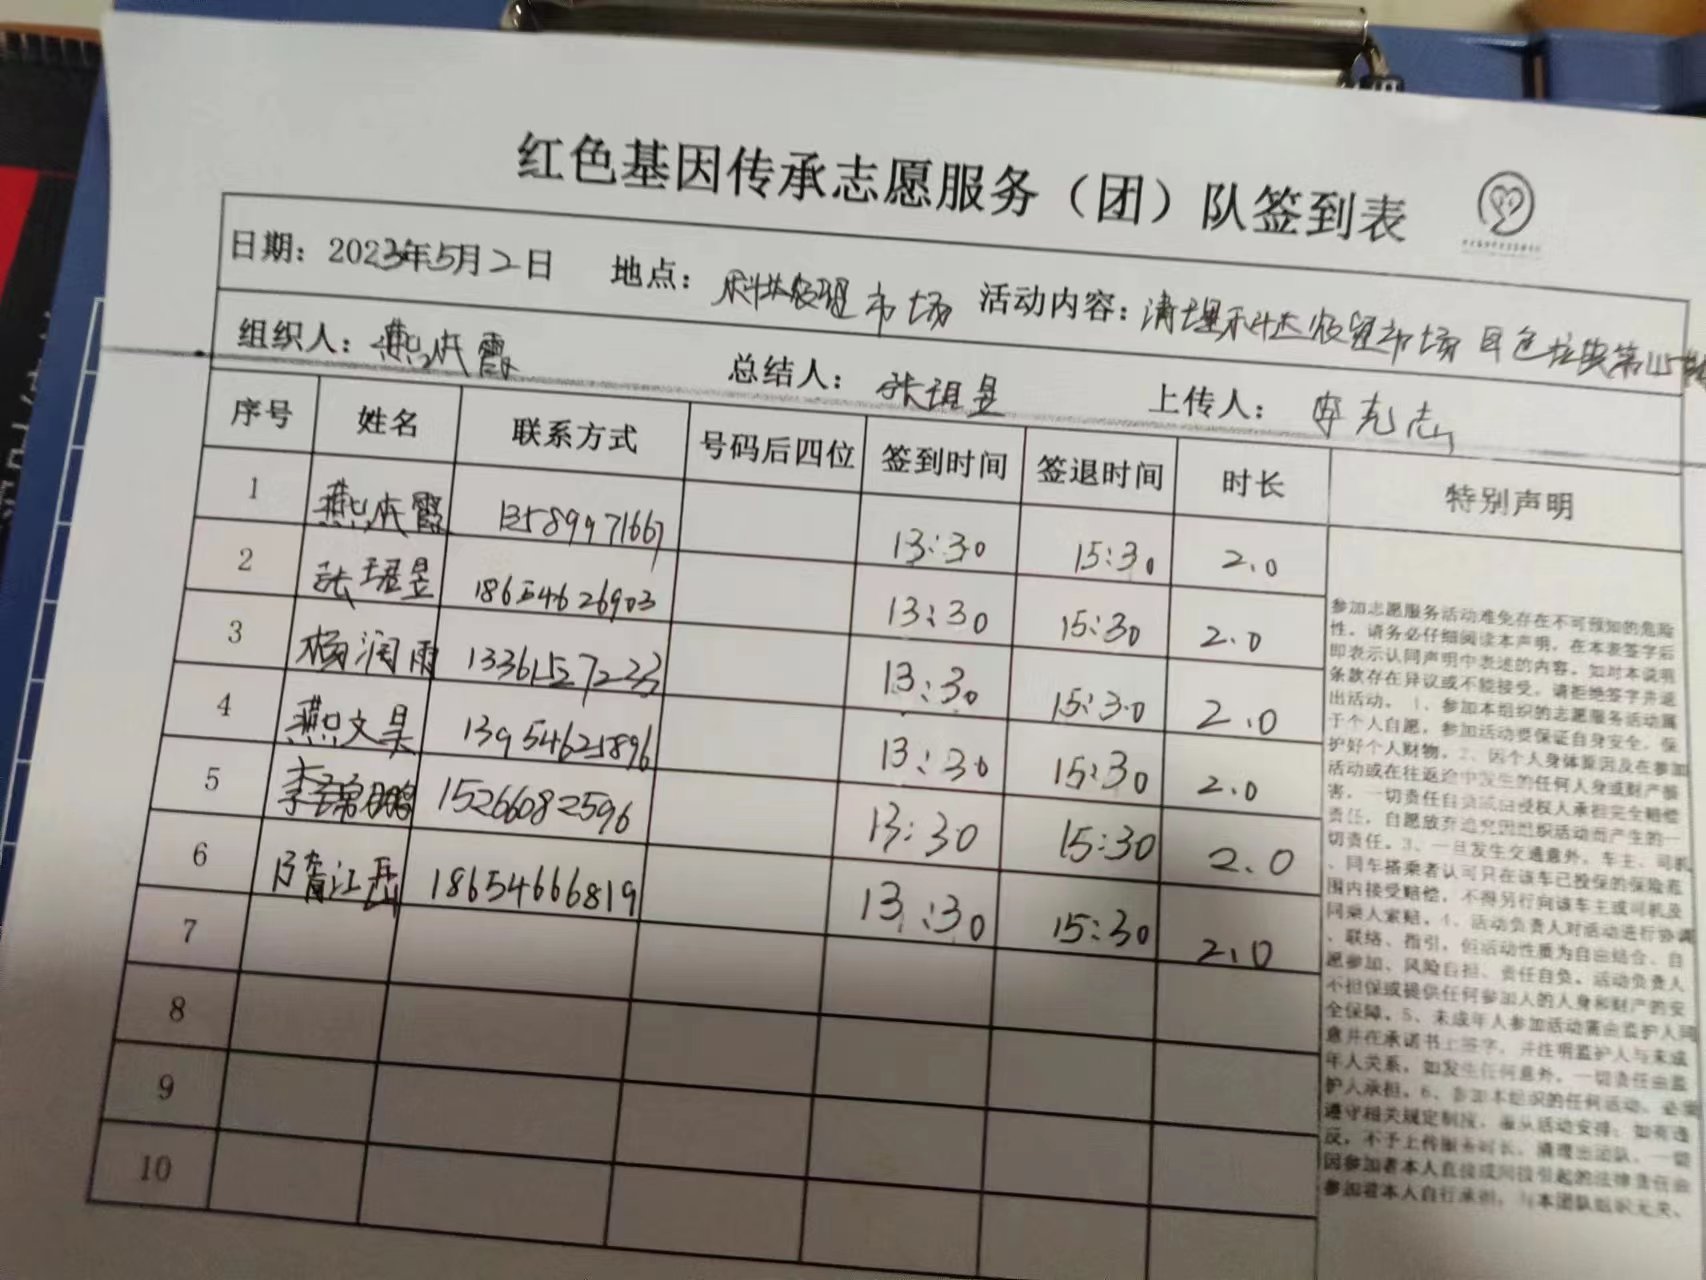 红色基因传承志愿服务（团）队签到表
日期：2023年5月2日 地点：市场 活动内容：清理市场白色垃圾
组织人：燕成霞 总结人：张珺昱 上传人：李克志
序号 姓名 联系方式 号码后四位 签到时间 签退时间 时长 特别声明
1 燕成霞 13589971667 13:30 15:30 2.0
2 张珺昱 18654626903 13:30 15:30 2.0
3 杨润雨 13361527233 13:30 15:30 2.0
4 燕文昊 13954625896 13:30 15:30 2.0
5 李锦鹏 15266082596 13:30 15:30 2.0
6 江岳 18654666819 13:30 15:30 2.0
7
8
9
10
参加志愿服务活动难免存在不可预知的危险
性，请务必仔细阅读本声明，在本表签字后
即表示认同声明中表述的内容，如对本说明
条款存在异议或不能接受，请拒绝签字并退
出活动。1、参加本组织的志愿服务活动属
于个人自愿，参加活动要保证自身安全，保
护好个人财物。2、因个人身体原因及在参加
活动或在往返途中发生的任何人身或财产损
害，一切责任自负或由侵权人承担完全赔偿
责任，自愿放弃追究因组织活动而产生的一
切责任。3、一旦发生交通意外，车主、司机
、同车搭乘者认可只在该车已投保的保险范
围内接受赔偿，不得另行向该车主或司机及
同乘人索赔。4、活动负责人对活动进行协调
、联络、指引，但活动性质为自由结合、自
愿参加、风险自担、责任自负，活动负责人
不担保或提供任何参加人的人身和财产的安
全保障。5、未成年人参加活动需由监护人同
意并在承诺书上签字，并注明监护人与未成
年人关系，如发生任何意外，一切责任由监
护人承担。6、参加本组织的任何活动，必须
遵守相关规定制度，服从活动安排；如有违
反，不予上传服务时长，清理出团队。一切
因参加者本人直接或间接引起的法律责任由
参加者本人自行承担，与本团队组织无关。